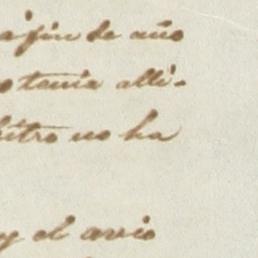 a fin de año
o tenia alli-
bitro no ha
y el avio